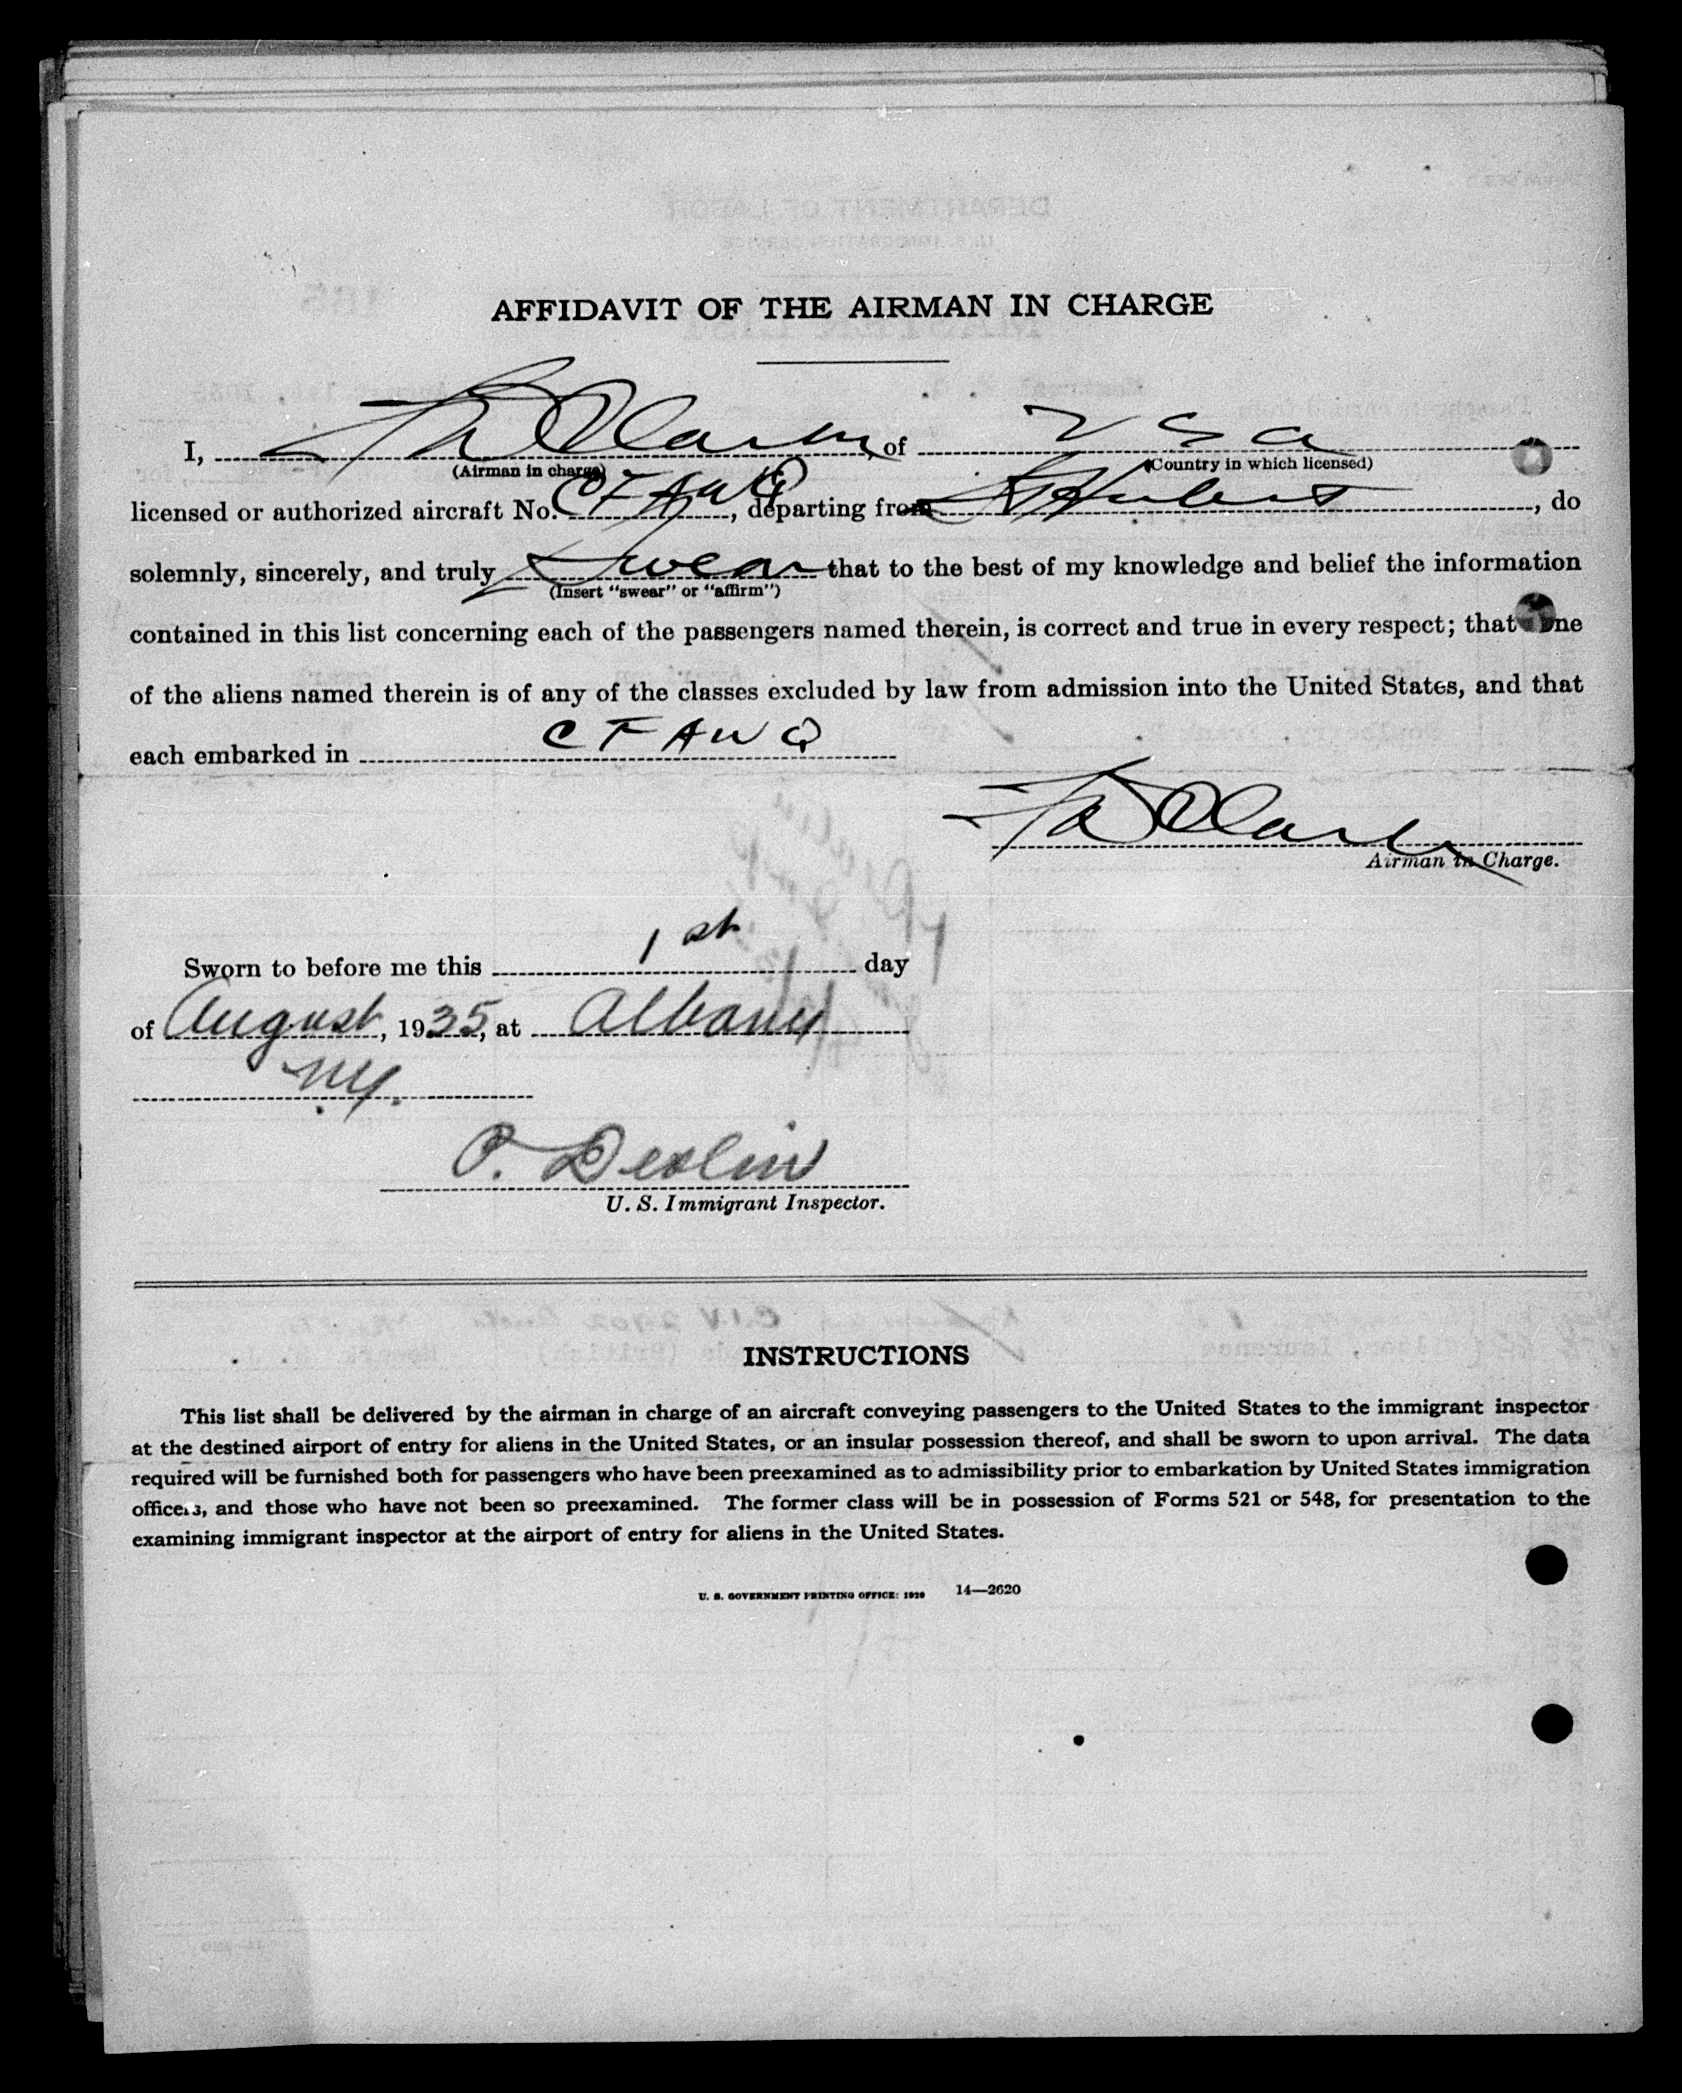 AFFIDAVIT OF THE AIRMAN IN CHARGE
I, Clark, of USA
(Airman in charge) (Country in which licensed)
licensed or authorized aircraft No. CFAWQ, departing from St Hubert, do
solemnly, sincerely, and truly Swear that to the best of my knowledge and belief the information
(Insert "swear" or "affirm")
contained in this list concerning each of the passengers named therein, is correct and true in every respect; that none
of the aliens named therein is of any of the classes excluded by law from admission into the United States, and that
each embarked in CFAWQ
Clark
Airman in Charge.
Sworn to before me this 1st day
of August, 1935, at Albany
N.Y.
P. Devlin
U. S. Immigrant Inspector.
INSTRUCTIONS
This list shall be delivered by the airman in charge of an aircraft conveying passengers to the United States to the immigrant inspector
at the destined airport of entry for aliens in the United States, or an insular possession thereof, and shall be sworn to upon arrival. The data
required will be furnished both for passengers who have been preexamined as to admissibility prior to embarkation by United States immigration
officers, and those who have not been so preexamined. The former class will be in possession of Forms 521 or 548, for presentation to the
examining immigrant inspector at the airport of entry for aliens in the United States.
U. S. GOVERNMENT PRINTING OFFICE: 1929 14—2620